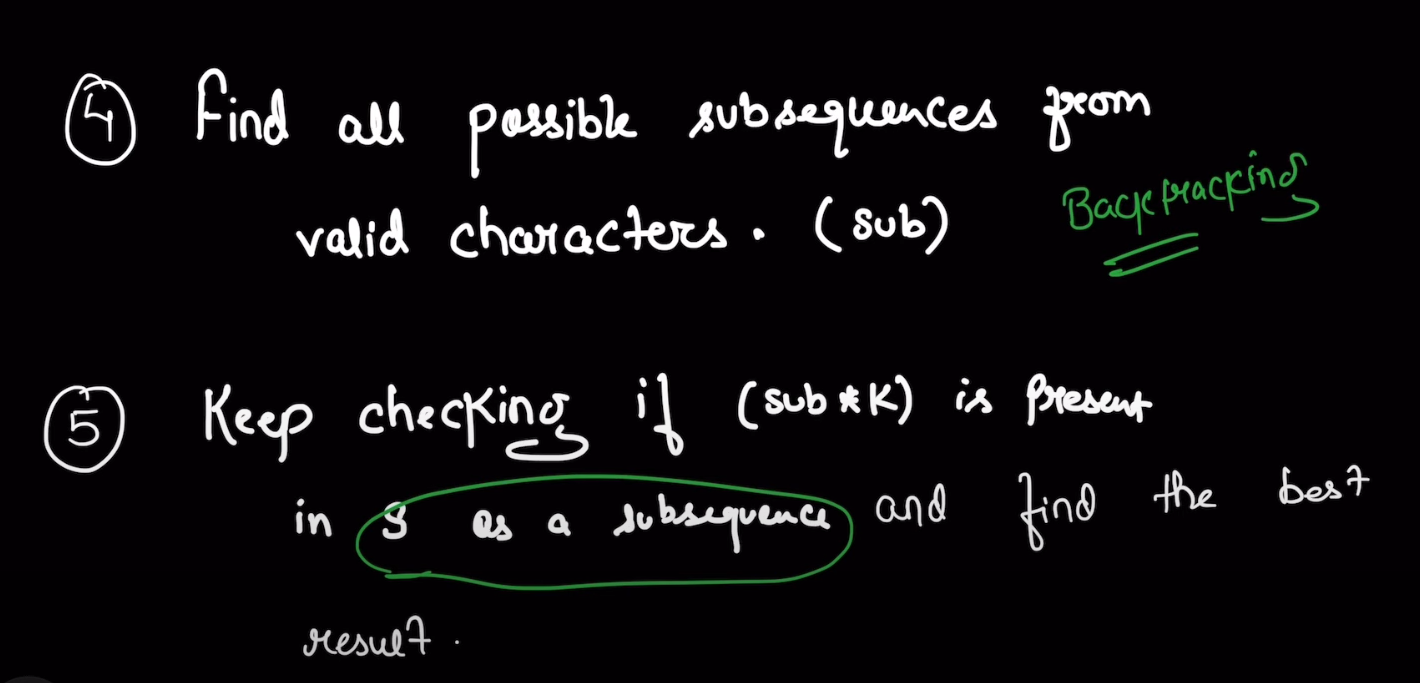 4 Find all possible subsequences from
valid characters. (sub)
Backtracking
5 Keep checking if (sub * K) is present
in S as a subsequence and find the best
result.